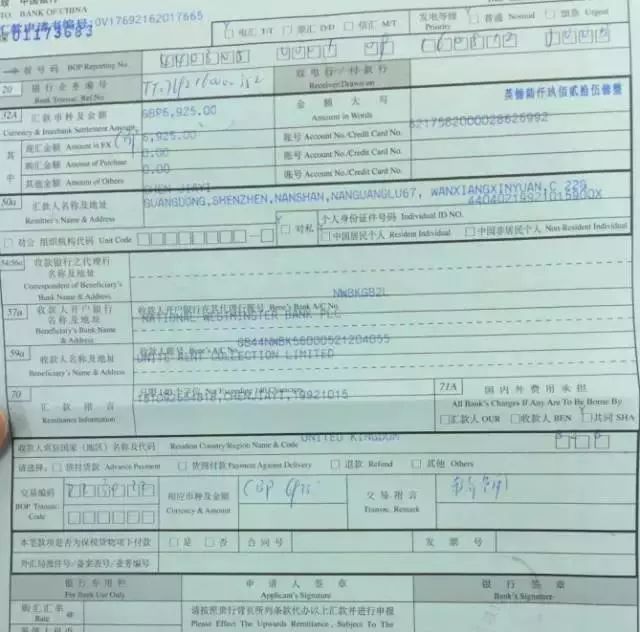 致 中国银行
TO: BANK OF CHINA
汇款申请书编号:OV17692162017665
01173683
电汇 T/T 票汇 D/D 信汇 M/T
发电等级 Priority 普通 Normal 加急 Urgent
申报号码 BOP Reporting No.
20 银行业务编号 Bank Transac. Ref. No.
收电行/付款行 Receiver/Drawn on
32A 汇款币种及金额 Currency & Interbank Settlement Amount
GBP6,925.00
金额大写 Amount in Words
英镑陆仟玖佰贰拾伍镑整
其中
现汇金额 Amount in FX 6,925.00
账号 Account No./Credit Card No.
6217582000028626992
购汇金额 Amount of Purchase 0.00
账号 Account No./Credit Card No.
其他金额 Amount of Others 0.00
账号 Account No./Credit Card No.
50a 汇款人名称及地址 Remitter's Name & Address
CHEN JIAYI
GUANGDONG,SHENZHEN,NANSHAN,NANGUANGLU67, WANXIANGXINYUAN,C 22G
44040219921015900X
对公 组织机构代码 Unit Code
对私
个人身份证件号码 Individual ID NO.
中国居民个人 Resident Individual 中国非居民个人 Non-Resident Individual
54/56a 收款银行之代理行名称及地址 Correspondent of Beneficiary's Bank Name & Address
NWBKGB2L
57a 收款人开户银行名称及地址 Beneficiary's Bank Name & Address
收款人开户银行在其代理行账号 Bene's Bank A/C No.
NATIONAL WESTMINSTER BANK PLC
GB44NWBK56000521204855
59a 收款人名称及地址 Beneficiary's Name & Address
收款人账号 Bene's A/C No.
UNITE RENT COLLECTION LIMITED
70 汇款附言 Remittance Information
只限140个字位 Not Exceeding 140 Characters
CHENJIAYI,19921015
71A 国内外费用承担
All Bank's Charges If Any Are To Be Borne By
汇款人 OUR 收款人 BEN 共同 SHA
收款人常驻国家(地区)名称及代码 Resident Country/Region Name & Code
UNITED KINGDOM
请选择: 预付货款 Advance Payment 货到付款 Payment Against Delivery 退款 Refund 其他 Others
交易编码 BOP Transac. Code
相应币种及金额 Currency & Amount
交易附言 Transac. Remark
本笔款项是否为保税货物项下付款 是 否 合同号 发票号
外汇局批件号/备案表号/业务编号
银行专用栏 For Bank Use Only
申请人签章 Applicant's Signature
银行签章 Bank's Signature
购汇汇率 Rate @
请按照贵行背页所列条款代办以上汇款并进行申报
Please Effect The Upwards Remittance, Subject To The